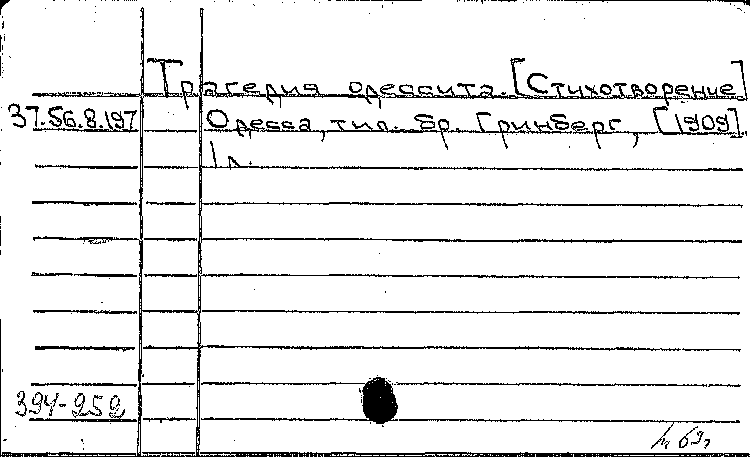 Трагедия одессита. [Стихотворение]
37.56.8.197 Одесса, тип. бр. Гринберг, [1909].
1 л.
394-252